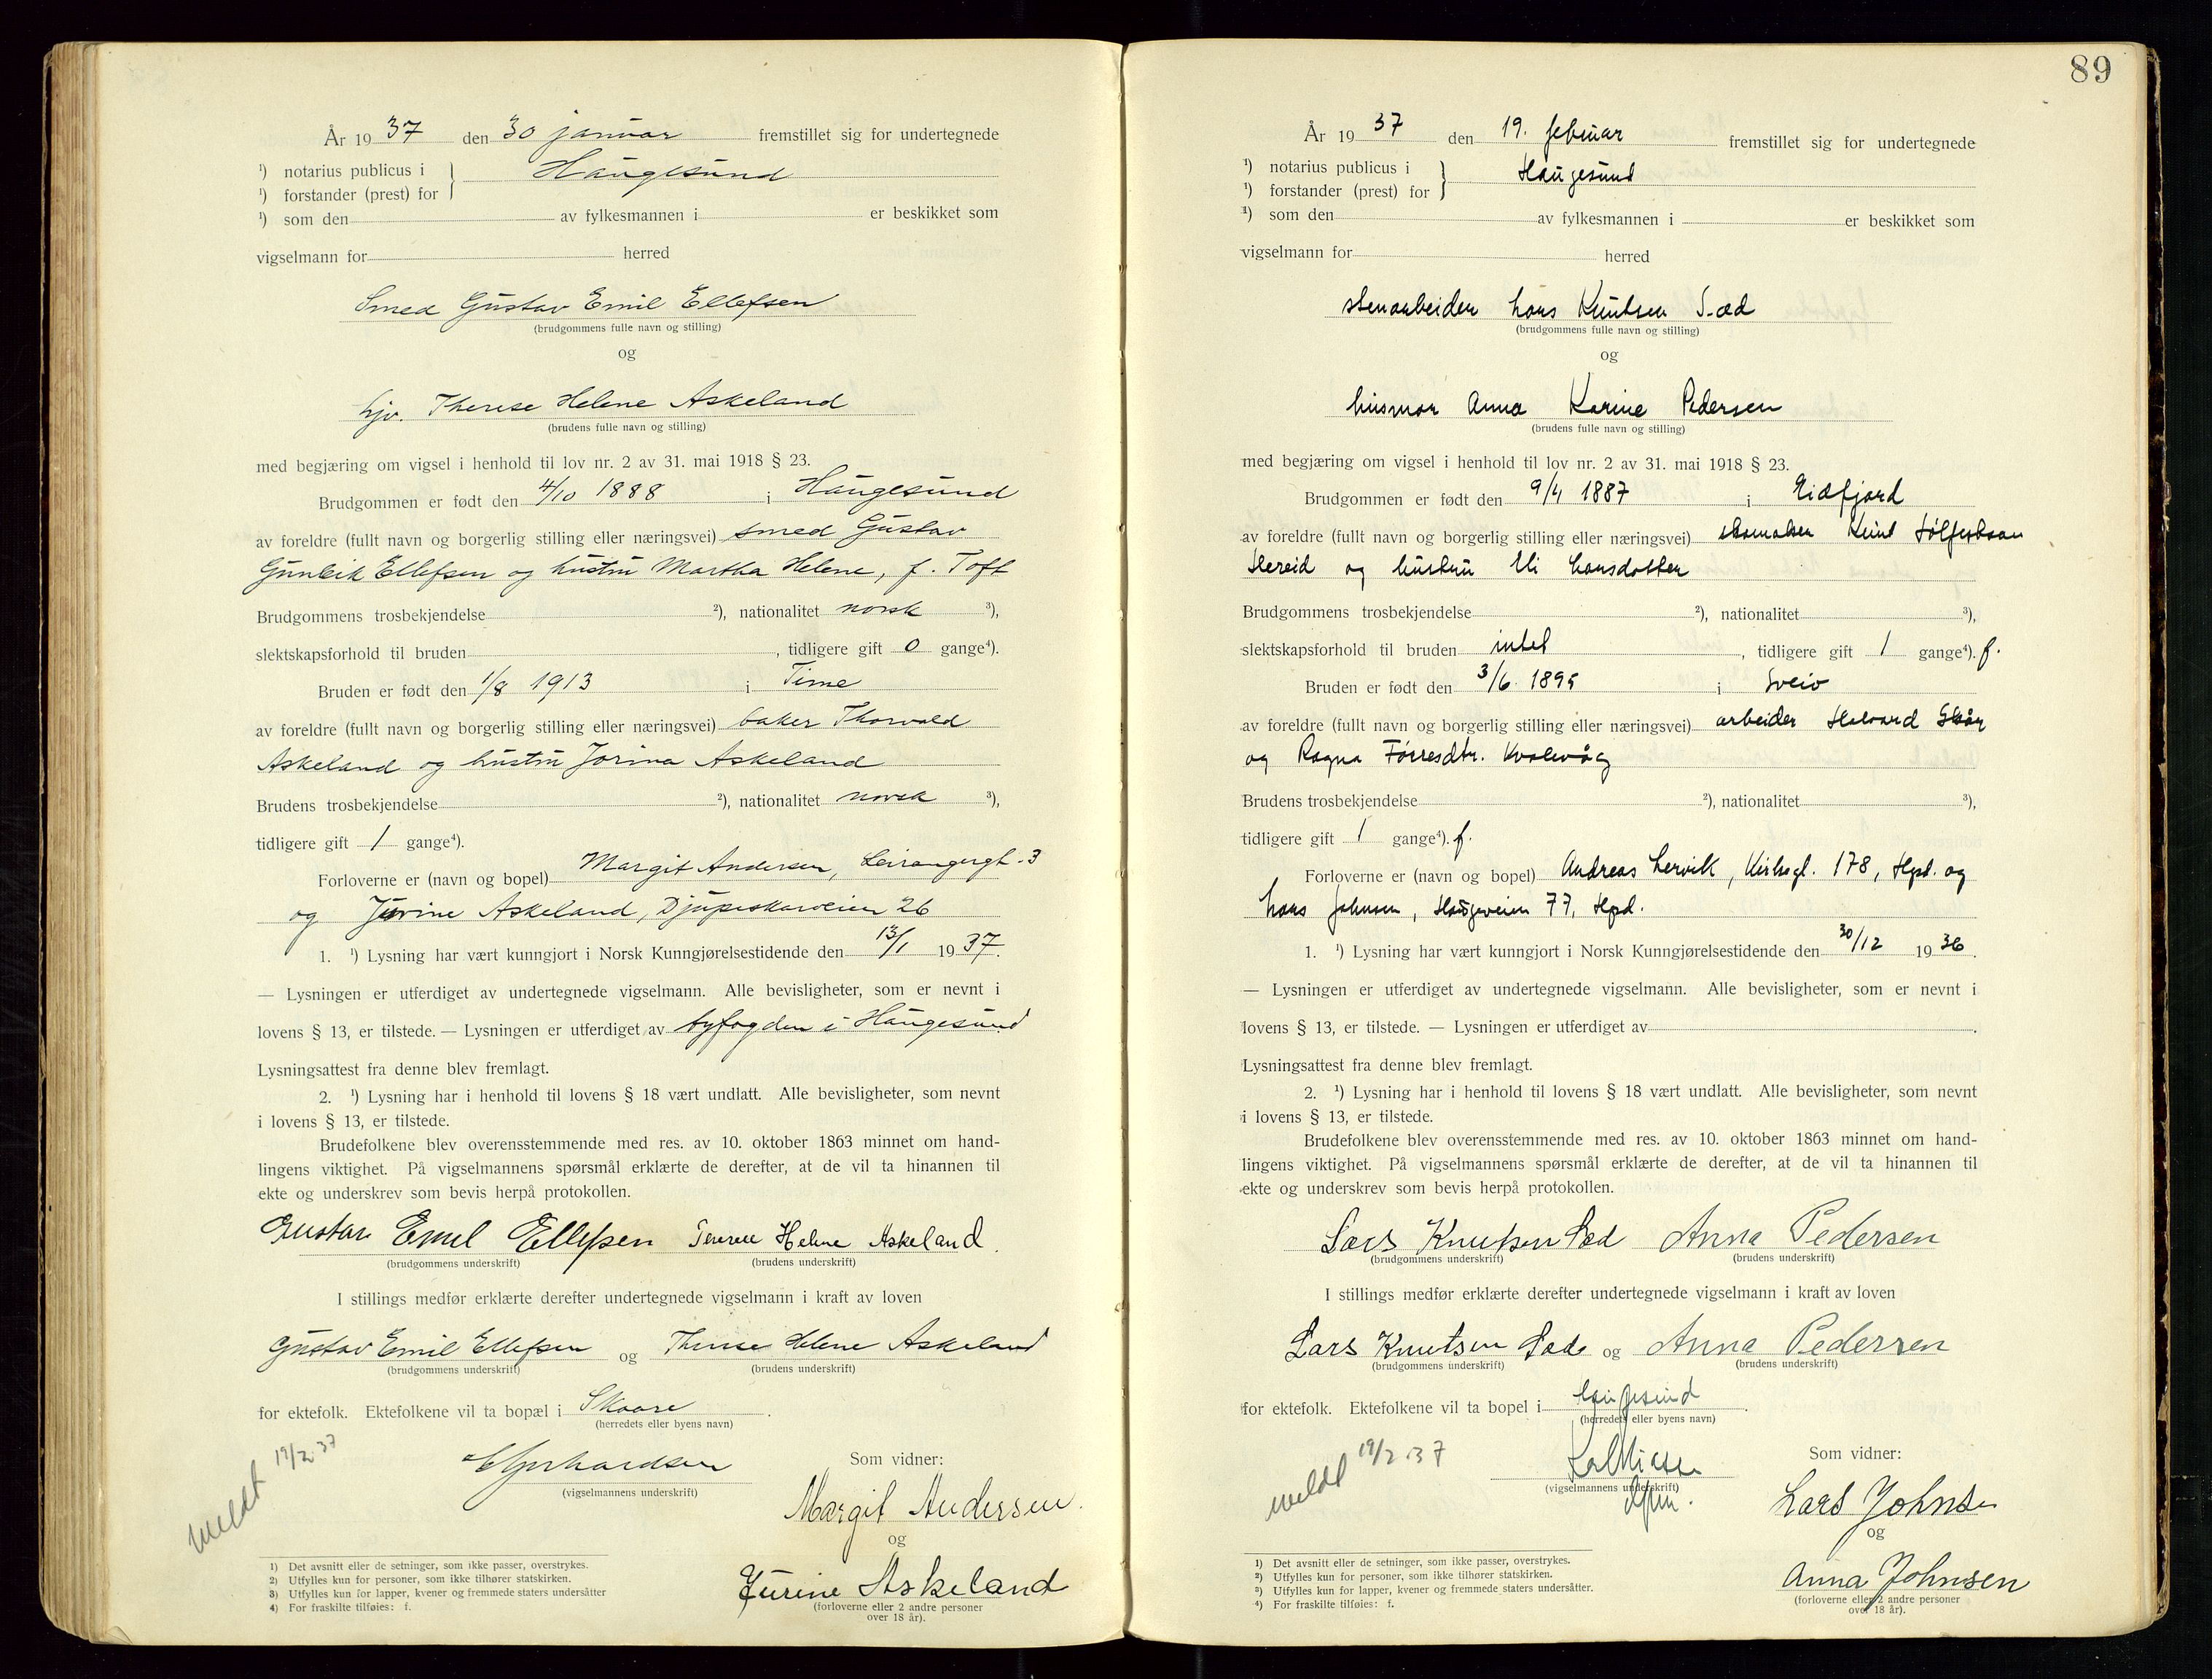 År 1937 den 30 januar fremstillet sig for undertegnede
¹) notarius publicus i } Haugesund
¹) forstander (prest) for
¹) som den av fylkesmannen i er beskikket som
vigselmann for herred
Smed Gustav Emil Ellefsen
(brudgommens fulle navn og stilling)
og
hjv. Therese Helene Askeland
(brudens fulle navn og stilling)
med begjæring om vigsel i henhold til lov nr. 2 av 31. mai 1918 § 23.
Brudgommen er født den 4/10 1888 i Haugesund
av foreldre (fullt navn og borgerlig stilling eller næringsvei) smed Gustav
Gunleik Ellefsen og hustru Martha Helene, f. Toft
Brudgommens trosbekjendelse ²), nationalitet norsk ³),
slektskapsforhold til bruden , tidligere gift 0 gange⁴).
Bruden er født den 1/8 1913 i Time
av foreldre (fullt navn og borgerlig stilling eller næringsvei) baker Thorvald
Askeland og hustru Jorina Askeland
Brudens trosbekjendelse ²), nationalitet norsk ³),
tidligere gift 1 gange⁴).
Forloverne er (navn og bopel) Margit Andersen, Leirangergt. 3
og Jurine Askeland, Djupaskarveien 26
1. ¹) Lysning har vært kunngjort i Norsk Kunngjørelsestidende den 13/1 1937.
— Lysningen er utferdiget av undertegnede vigselmann. Alle bevisligheter, som er nevnt i
lovens § 13, er tilstede. — Lysningen er utferdiget av byfogden i Haugesund
Lysningsattest fra denne blev fremlagt.
2. ¹) Lysning har i henhold til lovens § 18 vært undlatt. Alle bevisligheter, som nevnt
i lovens § 13, er tilstede.
Brudefolkene blev overensstemmende med res. av 10. oktober 1863 minnet om hand-
lingens viktighet. På vigselmannens spørsmål erklærte de derefter, at de vil ta hinannen til
ekte og underskrev som bevis herpå protokollen.
Gustav Emil Ellefsen Terese Helene Askeland.
(brudgommens underskrift) (brudens underskrift)
I stillings medfør erklærte derefter undertegnede vigselmann i kraft av loven
Gustav Emil Ellefsen og Therese Helene Askeland
(brudgommens underskrift) (brudens underskrift)
for ektefolk. Ektefolkene vil ta bopæl i Skaare.
(herredets eller byens navn)
meldt 19/2.37
Som vidner:
(vigselmannens underskrift)
Margit Andersen.
og
Jurine Askeland
(forloverne eller 2 andre personer
over 18 år).
1) Det avsnitt eller de setninger, som ikke passer, overstrykes.
2) Utfylles kun for personer, som ikke tilhører statskirken.
3) Utfylles kun for lapper, kvener og fremmede staters undersåtter
4) For fraskilte tilføies: f.
89
År 1937 den 19. februar fremstillet sig for undertegnede
¹) notarius publicus i } Haugesund
¹) forstander (prest) for
¹) som den av fylkesmannen i er beskikket som
vigselmann for herred
stenarbeider Lars Knutsen Sæd
(brudgommens fulle navn og stilling)
og
husmor Anna Karine Pedersen
(brudens fulle navn og stilling)
med begjæring om vigsel i henhold til lov nr. 2 av 31. mai 1918 § 23.
Brudgommen er født den 9/4 1887 i Eidfjord
av foreldre (fullt navn og borgerlig stilling eller næringsvei) skomaker Knut
Hereid og hustru Eli Larsdotter
Brudgommens trosbekjendelse ²), nationalitet ³),
slektskapsforhold til bruden intet , tidligere gift 1 gange⁴). f.
Bruden er født den 3/6 1895 i Sveio
av foreldre (fullt navn og borgerlig stilling eller næringsvei) arbeider Halvard Skår
og Ragna Førresdtr. Kvalevåg
Brudens trosbekjendelse ²), nationalitet ³),
tidligere gift 1 gange⁴). f.
Forloverne er (navn og bopel) Andreas Lervik, Kirkegt. 178, Hgsd. og
Lars Johnsen, Haugeveien 77, Hgsd.
1. ¹) Lysning har vært kunngjort i Norsk Kunngjørelsestidende den 30/12 1936.
— Lysningen er utferdiget av undertegnede vigselmann. Alle bevisligheter, som er nevnt i
lovens § 13, er tilstede. — Lysningen er utferdiget av .
Lysningsattest fra denne blev fremlagt.
2. ¹) Lysning har i henhold til lovens § 18 vært undlatt. Alle bevisligheter, som nevnt
i lovens § 13, er tilstede.
Brudefolkene blev overensstemmende med res. av 10. oktober 1863 minnet om hand-
lingens viktighet. På vigselmannens spørsmål erklærte de derefter, at de vil ta hinannen til
ekte og underskrev som bevis herpå protokollen.
Lars Knutsen Sæd Anna Pedersen
(brudgommens underskrift) (brudens underskrift)
I stillings medfør erklærte derefter undertegnede vigselmann i kraft av loven
Lars Knutsen Sæd og Anna Pedersen
(brudgommens underskrift) (brudens underskrift)
for ektefolk. Ektefolkene vil ta bopel i Haugesund.
(herredets eller byens navn)
meldt 19/2.37
Som vidner:
(vigselmannens underskrift)
Lars Johnsen
og
Anna Johnsen
(forloverne eller 2 andre personer
over 18 år).
1) Det avsnitt eller de setninger, som ikke passer, overstrykes.
2) Utfylles kun for personer, som ikke tilhører statskirken.
3) Utfylles kun for lapper, kvener og fremmede staters undersåtter.
4) For fraskilte tilføies: f.